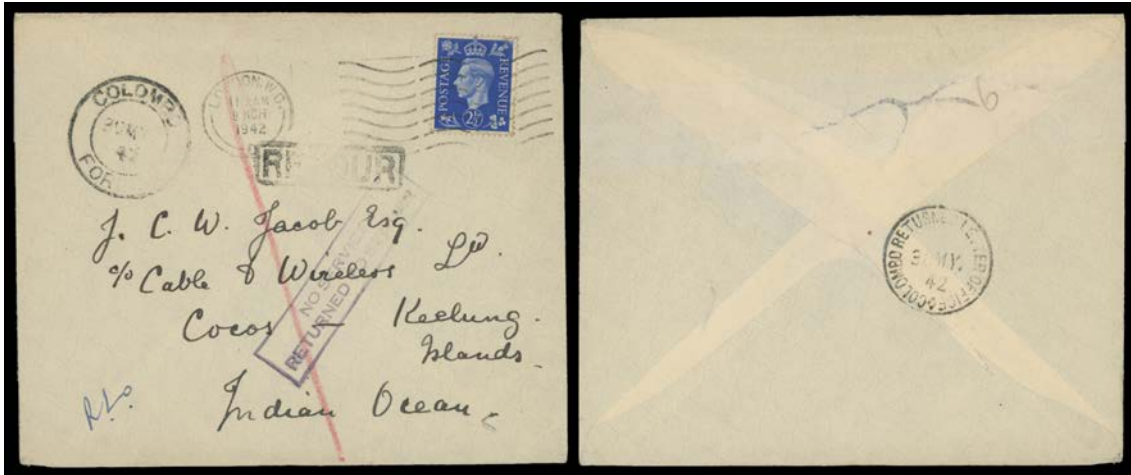 COLOMBO
MY
42
LONDON, W.C.
AM
MCH
1942
POSTAGE
REVENUE
2½
RETOUR
NO SERVICE
RETURNED TO
J. C. W. Jacob Esq.
c/o Cable & Wireless Ld
Cocos — Keelung
Islands
Indian Ocean
R.L.O.
COLOMBO RETURNED LETTER OFFICE
MY.
42